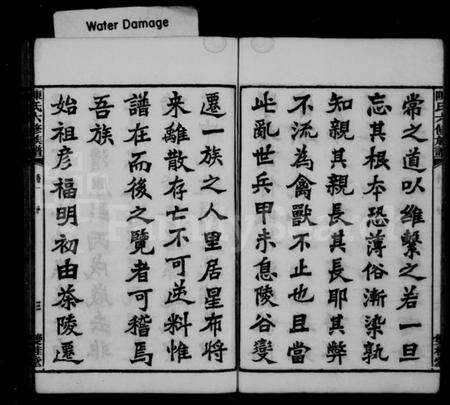 Water Damage
常之道以維繫之若一旦
忘其根本恐薄俗漸染孰
知親其親長其長耶其弊
不流為禽獸不止也且當
此亂世兵甲未息陵谷變
遷一族之人里居星布將
來離散存亡不可逆料惟
譜在而後之覽者可稽焉
吾族
始祖彦福明初由茶陵遷
陳氏六修族譜